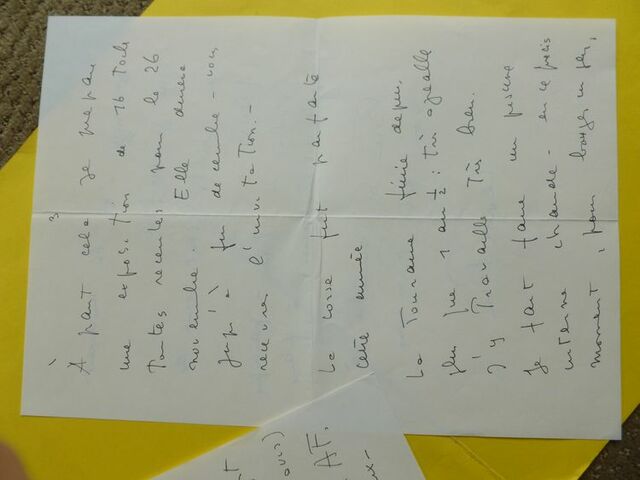 3
À part cela je prépare
une exposition de 16 Toiles
Toutes récentes pour le 26
novembre. Elle durera
jusqu'à fin décembre - vous
recevrez l'invitation. -
La Corse fut
cette année
La Touraine finie depuis
plus que 1 an ½ : Très agréable
J'y Travaille Très bien.
Je fait faire un piscine
interne chaude - en ce précis
moment, pour bouger un peu,
ours)
AT,
ux-